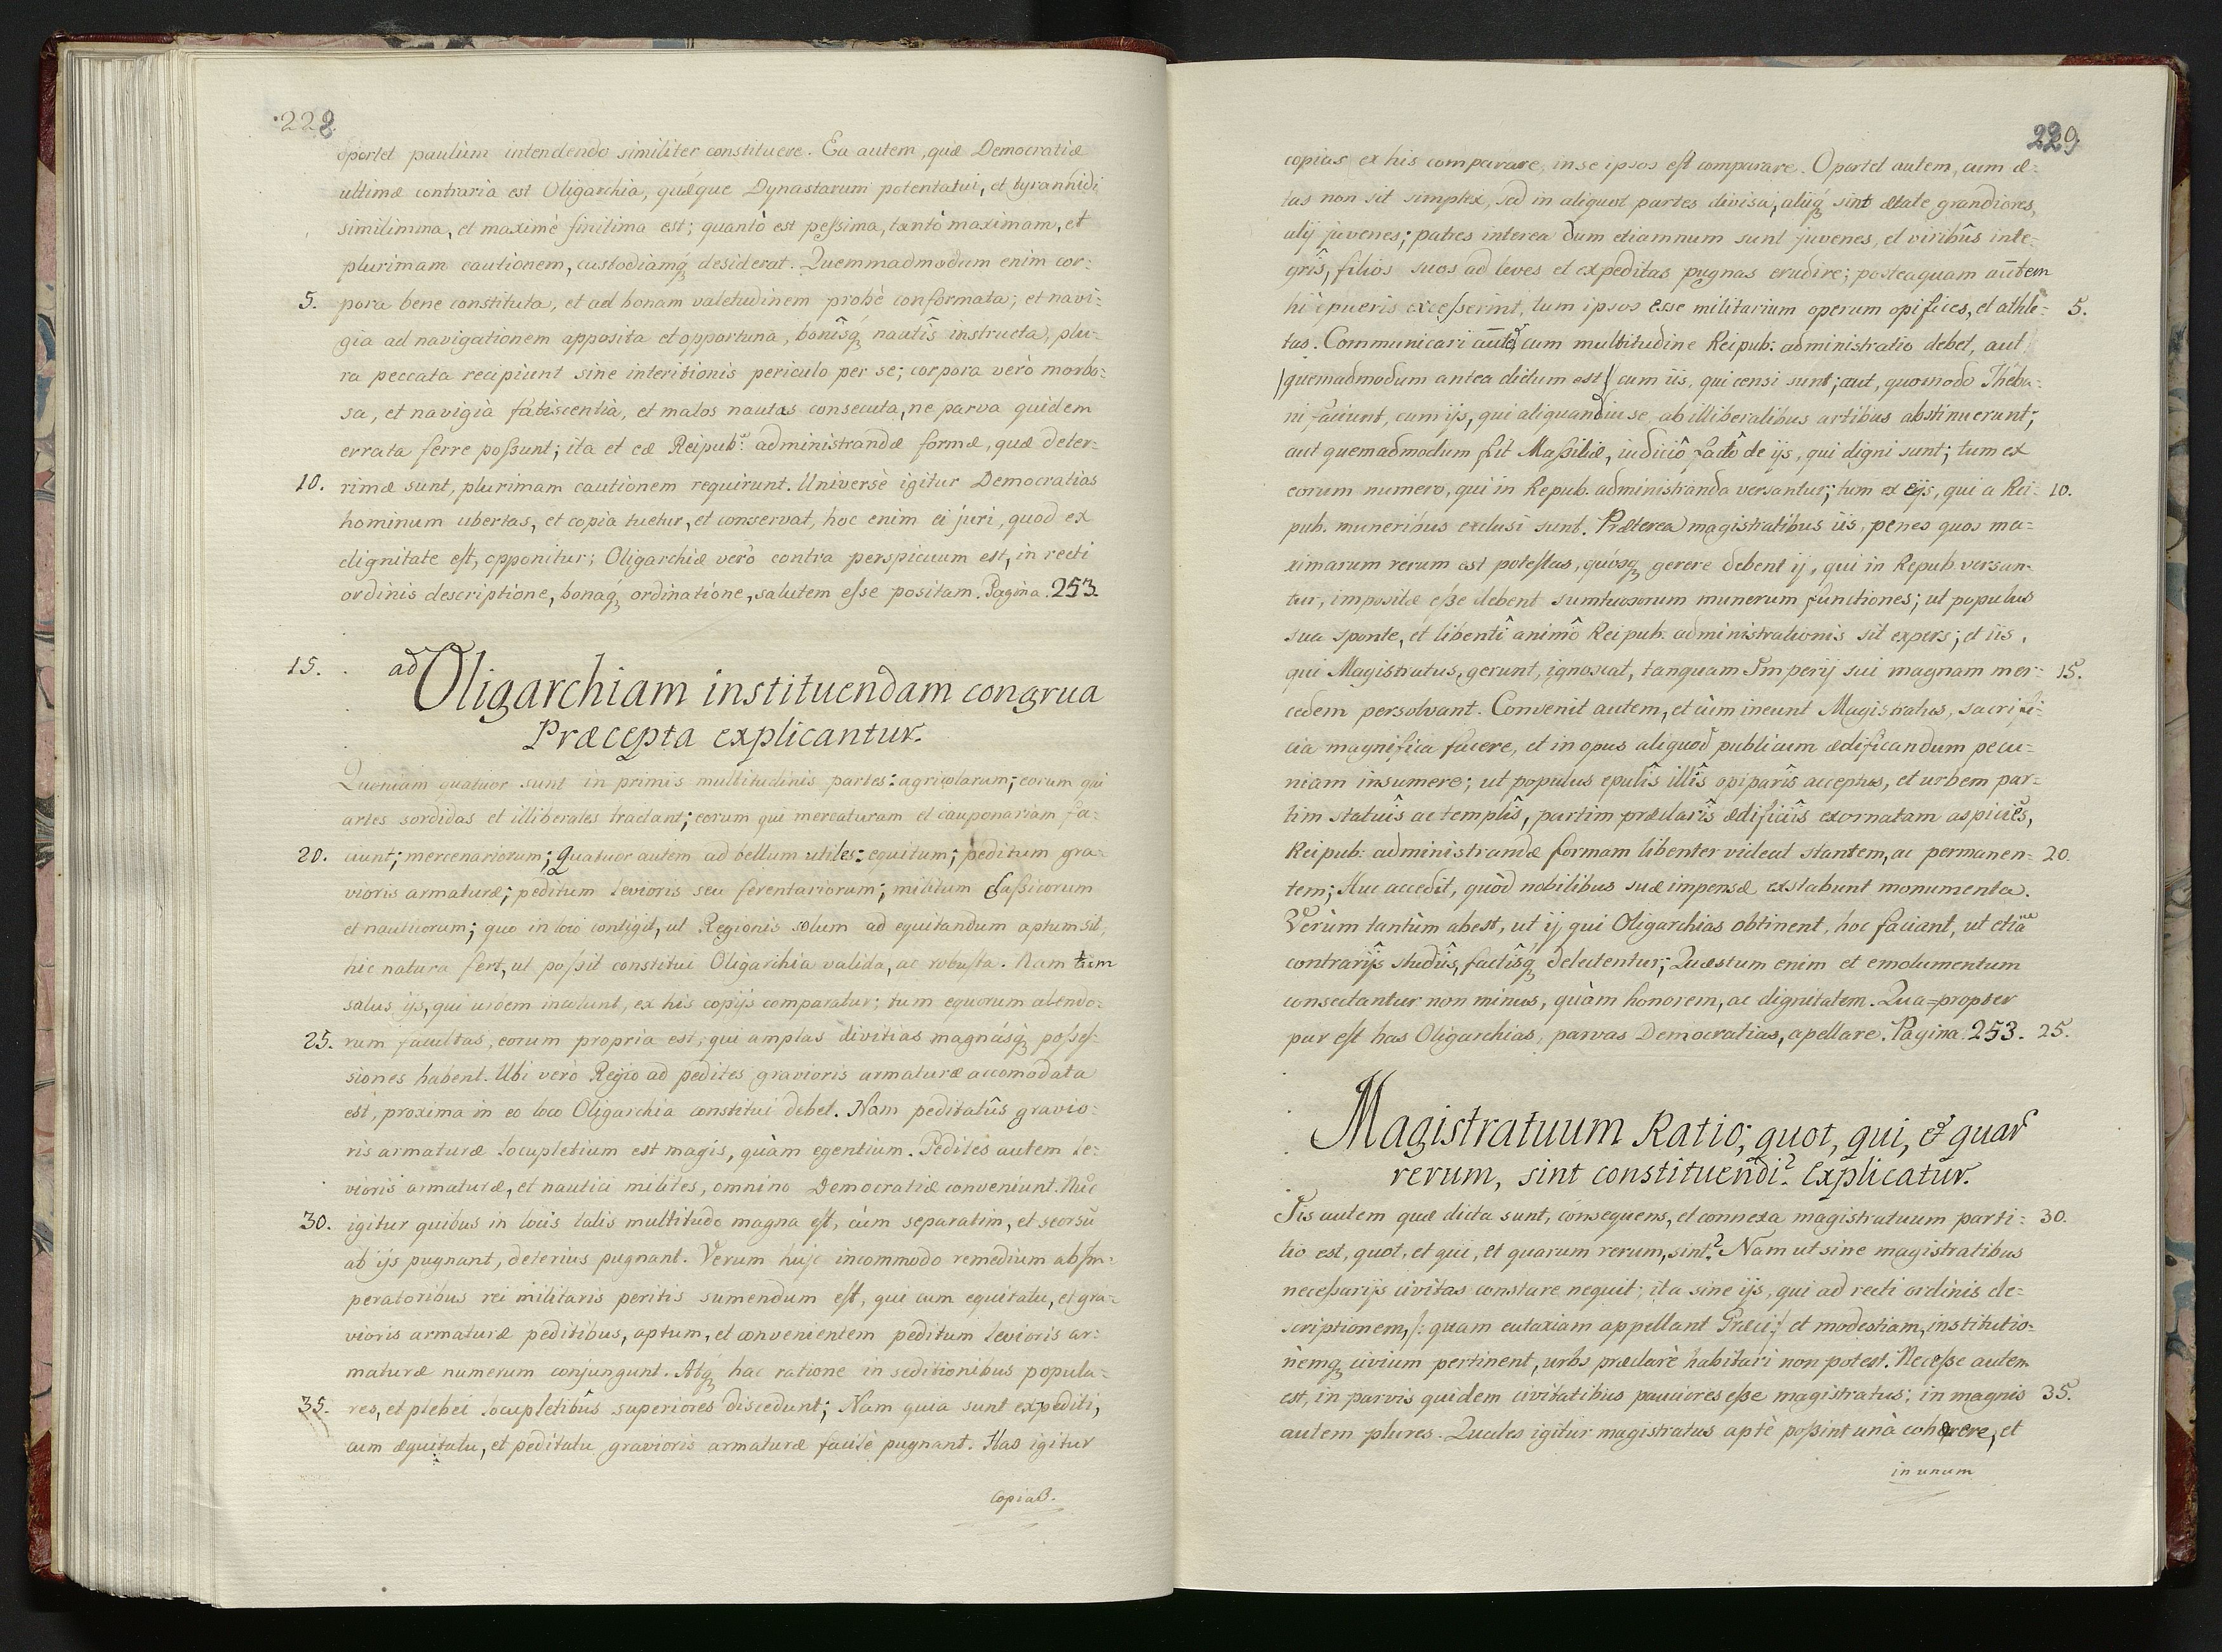 228
oportet paulùm intendendo similiter constituere. Ea autem, quæ Democratiæ
ultimæ contraria est Oligarchia, quæque Dynastarum potentatui, et tyrannidi
simillima, et maximè finitima est; quantò est peſsima, tantò maximam, et
plurimam cautionem, custodiamq́ desiderat. Quemmadmodum enim cor:
5. pora bene constituta, et ad bonam valetudinem probè conformata; et navi:
gia ad navigationem apposita et opportuna, bonîsq́ nautîs instructa, plu:
ra peccata recipiunt sine interitionis periculo per se; corpora verò morbo:
sa, et navigia fatiscentia, et malos nautas consecuta, ne parva quidem
errata ferre poſsunt; ita et eæ Reipub: administrandæ formæ, quæ deter:
10. rimæ sunt, plurimam cautionem requirunt. Universè igitur Democratias
hominum ubertas, et copia tuetur, et conservat, hoc enim ei juri, quod ex
dignitate eſt, opponitur; Oligarchiæ verò contra perspicuum est, in recti
ordinis descriptione, bonaq́ ordinatione, salutem eſse positam. Pagina. 253.
15. ad Oligarchiam instituendam congrua
Præcepta explicantur.
Quoniam quatuor sunt in primis multitudinis partes: agricolarum; eorum qui
artes sordidas et illiberales tractant; eorum qui mercaturam et cauponariam fa:
20. ciunt; mercenariorum; Quatuor autem ad bellum utiles: equitum; peditum gra:
vioris armaturæ; peditum levioris seu ferentariorum; militum claſsicorum
et nauticorum; quo in loco contigit, ut Regionis solum ad equitandum aptum sit,
hic natura fert, ut poſsit constitui Oligarchia valida, ac robuſta. Nam tum
salus ijs, qui urbem incolunt, ex his copijs comparatur; tum equorum alendo:
25. rum facultas, eorum propria est, qui amplas divitias magnásq́ poſseſ:
siones habent. Ubi verò Regio ad pedites gravioris armaturæ accomodata
est, proxima in eo loco Oligarchia constitui debet. Nam peditatûs gravio:
ris armaturæ locupletium est magis, quàm egentium. Pedites autem le:
vioris armaturæ, et nautici milites, omnino Democratiæ conveniunt. Nuc
30. igitur quibus in locis talis multitudo magna eſt, cùm separatim, et seorsū
ab ijs pugnant, deterius pugnant. Verum huic incommodo remedium ab Im:
peratoribus rei militaris peritis sumendum eſt, qui cum equitatu, et gra:
vioris armaturæ peditibus, aptum, et convenientem peditum levioris ar:
maturæ numerum conjungunt. Atq́ hac ratione in seditionibus popula:
35. res, et plebei locupletibûs superiores discedunt; Nam quia sunt expediti,
cum æquitatu, et peditatu gravioris armaturæ facilè pugnant. Has igitur
copias.
229
copias ex his comparare, in se ipsos eſt comparare. Oportet autem, cum æ:
tas non sit simplex, sed in aliquot partes divisa, aliiq́ sint ætate grandiores,
alij juvenes; patres interea dum etiamnum sunt juvenes, et viribûs inte:
grîs, filios suos ad leves et expeditas pugnas erudire; posteaquam autem
hi è pueris exceſserint, tum ipsos esse militarium operum opifices, et athle: 5.
tas. Communicari autē cum multitudine Reipub: administratio debet, aut
/quemadmodum antea dictum est/ cum iis, qui censi sunt; aut, quomodo Theba:
ni faciunt, cum ijs, qui aliquandiu se ab illiberalibus artibus abstinuerunt;
aut quemadmodum fit Maſsiliæ, iudiciô factô de ijs, qui digni sunt; tum ex
eorum numero, qui in Repub. administranda versantur; tum ex eijs, qui a Rei: 10.
pub. muneribus exclusi sunt. Præterea magistratibus iis, penes quos ma:
ximarum rerum est poteſtas, quósq́ gerere debent ij, qui in Repub. versan:
tur, impositæ eſse debent sumtuosorum munerum functiones; ut populus
sua sponte, et libentî animô Reipub. administrationis sit expers; et iis,
qui Magistratus gerunt, ignoscat, tanquam Imperij sui magnam mer: 15.
cedem persolvant. Convenit autem, et cùm ineunt Magistratus, sacrifi:
cia magnifica facere, et in opus aliquod publicum ædificandum pecu:
niam insumere; ut populus epulîs illîs opiparîs acceptus, et urbem par:
tim statuîs ac templîs, partim præclarîs ædificiîs exornatam aspiciēs,
Reipub. administrandæ formam libenter videat stantem, ac permanen: 20.
tem; Huc accedit, quòd nobilibus suæ impensæ exstabunt monumenta.
Verùm tantùm abest, ut ij, qui Oligarchias obtinent, hoc faciant, ut etiā
contrarijs studiîs, factîsq́ delectentur; Quæstum enim et emolumentum
consectantur non minus, quàm honorem, ac dignitatem. Qua=propter
par eſt has Oligarchias, parvas Democratias, apellare. Pagina. 253. 25.
Magistratuum Ratio; quot, qui, et quar
rerum, sint constituendi? Explicatur.
Iis autem quæ dicta sunt, consequens, et connexa magistratuum parti: 30.
tio est, quot, et qui, et quarum rerum, sint? Nam ut sine magistratibus
neceſsarijs civitas constare nequit; ita sine ijs, qui ad recti ordinis de:
scriptionem, /: quam eutaxiam appellant Græci:/ et modestiam, institutio:
nemq́ civium pertinent, urbs præclarè habitari non potest. Neceſse autem
est, in parvis quidem civitatibus pauciores eſse magistratus; in magnis 35.
autem plures. Quales igitur magistratus aptè poſsint unà cohærere, et
in unum